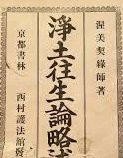 渥美契縁師著
淨土往生論略述
京都書林 西村護法館發